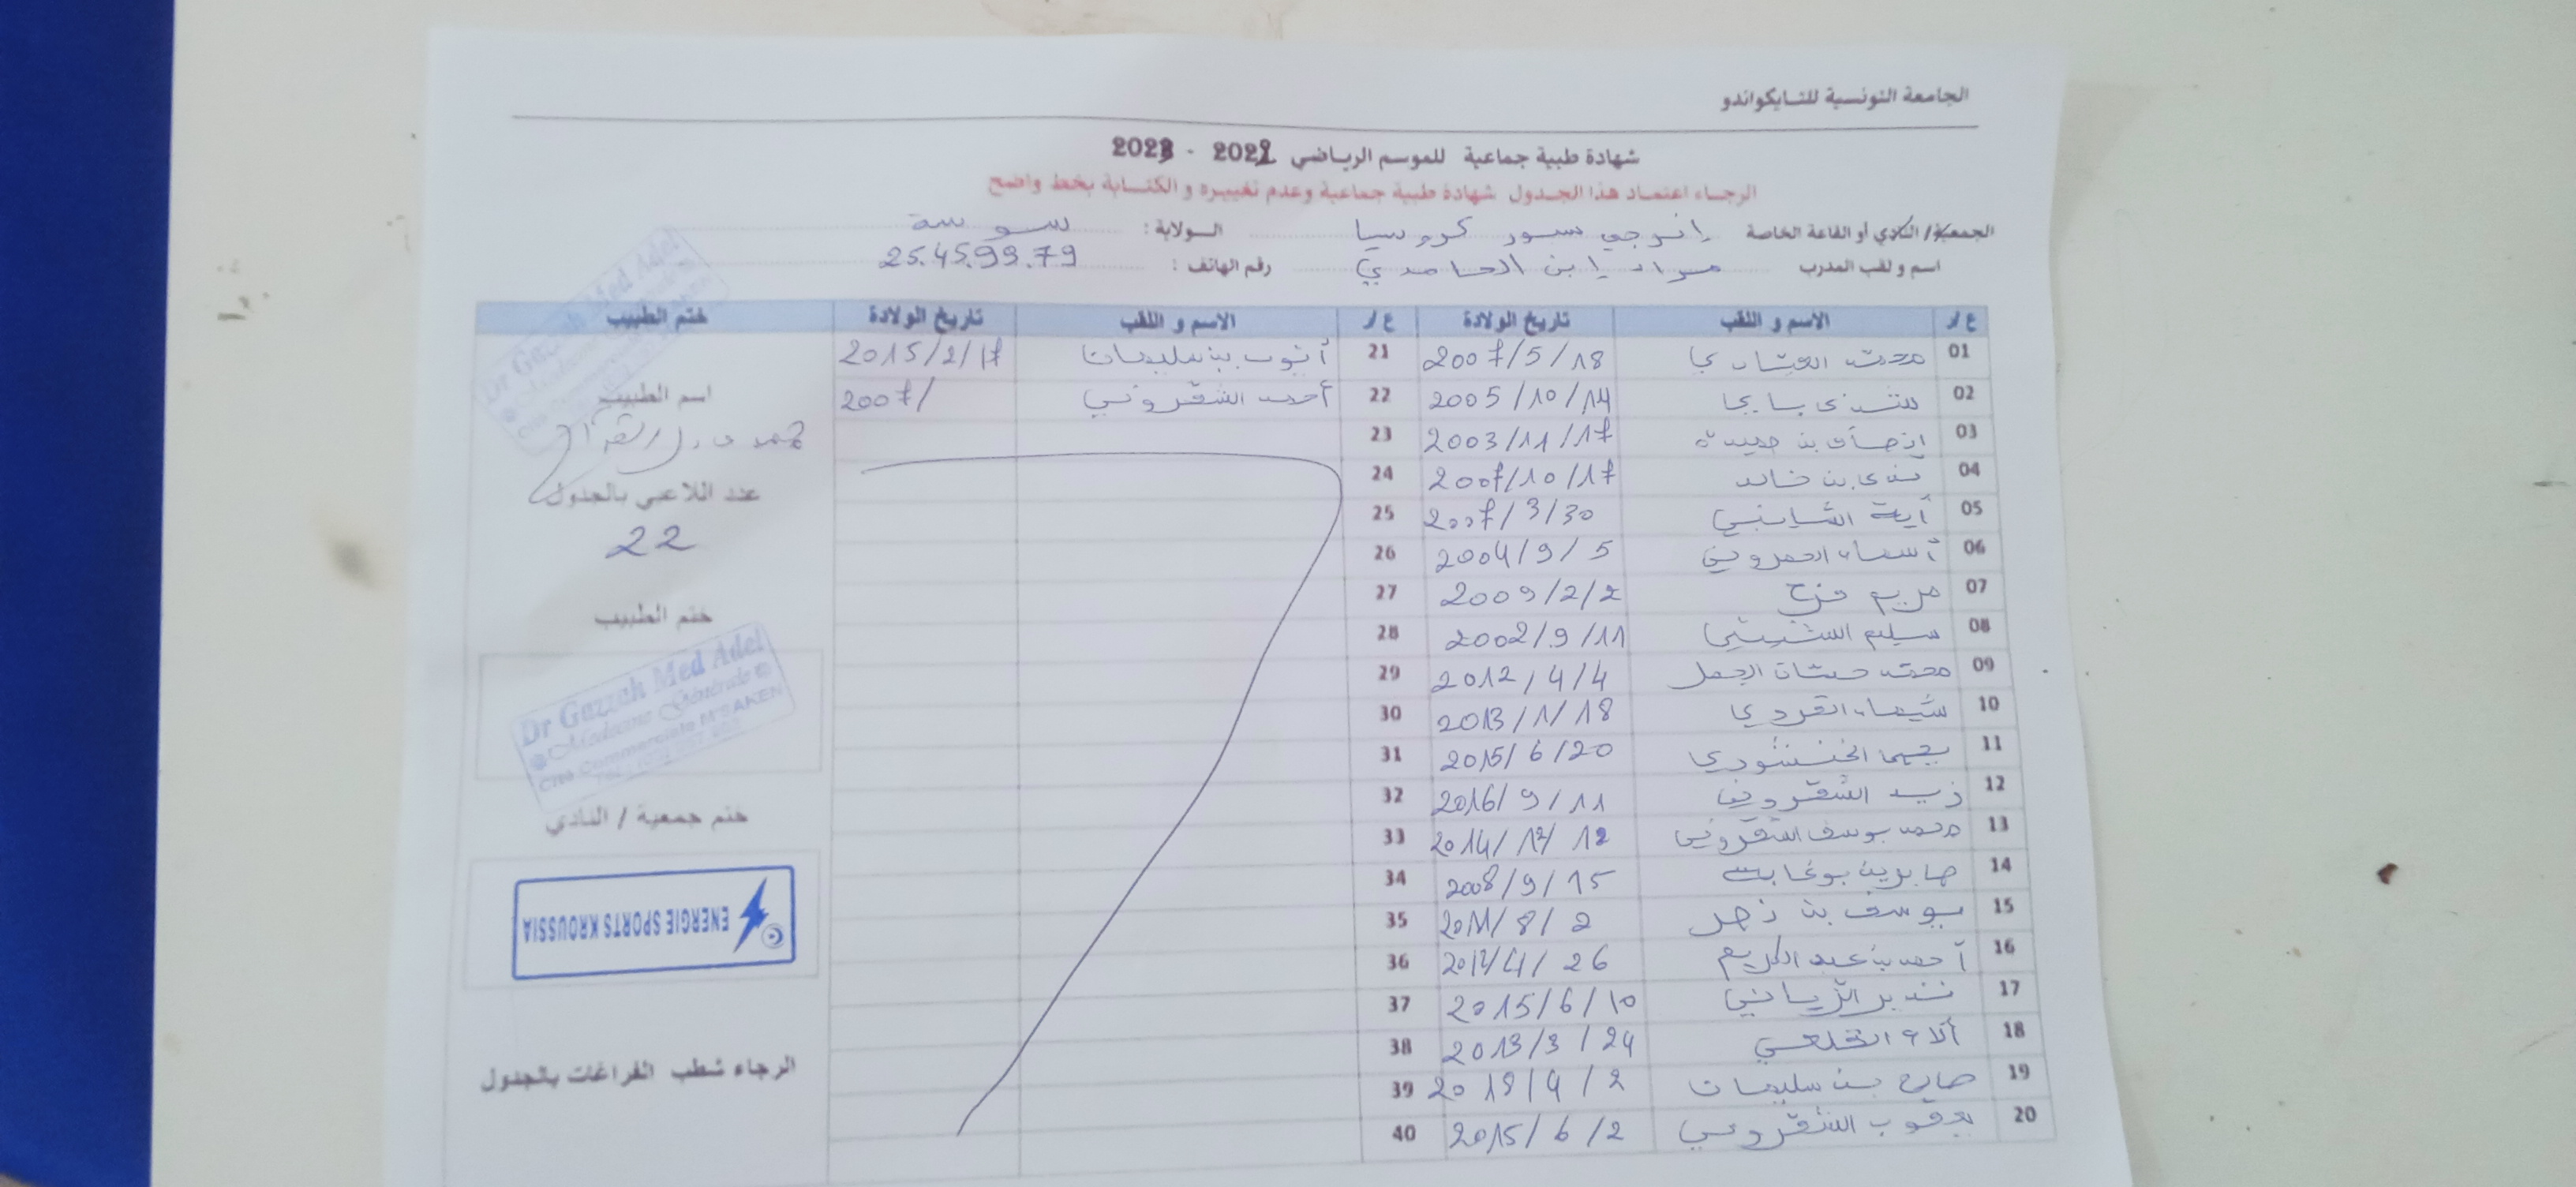 الجامعة التونسية للتايكواندو
شهادة طبية جماعية للموسم الرياضي 2022 - 2023
الرجاء اعتماد هذا الجدول شهادة طبية جماعية وعدم تغييره و الكتابة بخط واضح
الجمعية/ النادي أو القاعة الخاصة إنرجي سبور كروسيا الولاية : سوسة
اسم و لقب المدرب مراد إبن الحامدي رقم الهاتف : 25.45.99.79
ع/ر الاسم و اللقب تاريخ الولادة ع/ر الاسم و اللقب تاريخ الولادة ختم الطبيب
01 محمد 2007/5/18 21 أيوب بن سليمان 2015/2/17
02 2005/10/14 22 أحمد الشقروني 2007/
اسم الطبيب
03 بن حميدة 2003/11/17 23
04 بن خالد 2007/10/17 24
عدد اللاعبي بالجدول
05 آية 2007/3/30 25
22
06 أسماء الحمروني 2004/9/5 26
07 مريم فرج 2009/2/2 27
ختم الطبيب
08 سليم 2002/9/11 28
Dr Gazzah Med Adel
Médecine Générale
Cité Commerciale M'SAKEN
09 محمد الجمل 2012/4/4 29
10 شيماء 2013/1/18 30
11 2015/6/20 31
12 زيد الشقروني 2016/9/11 32
ختم جمعية / النادي
13 محمد يوسف الشقروني 2014/12/12 33
14 صابرين 2008/9/15 34
ENERGIE SPORTS KROUSSIA
15 يوسف بن 2011/8/2 35
16 أحمد بن عبد الكريم 2012/4/26 36
17 2015/6/10 37
18 ألاء 2013/3/24 38
الرجاء شطب الفراغات بالجدول
19 صالح بن سليمان 39
20 يعقوب الشقروني 2015/6/2 40